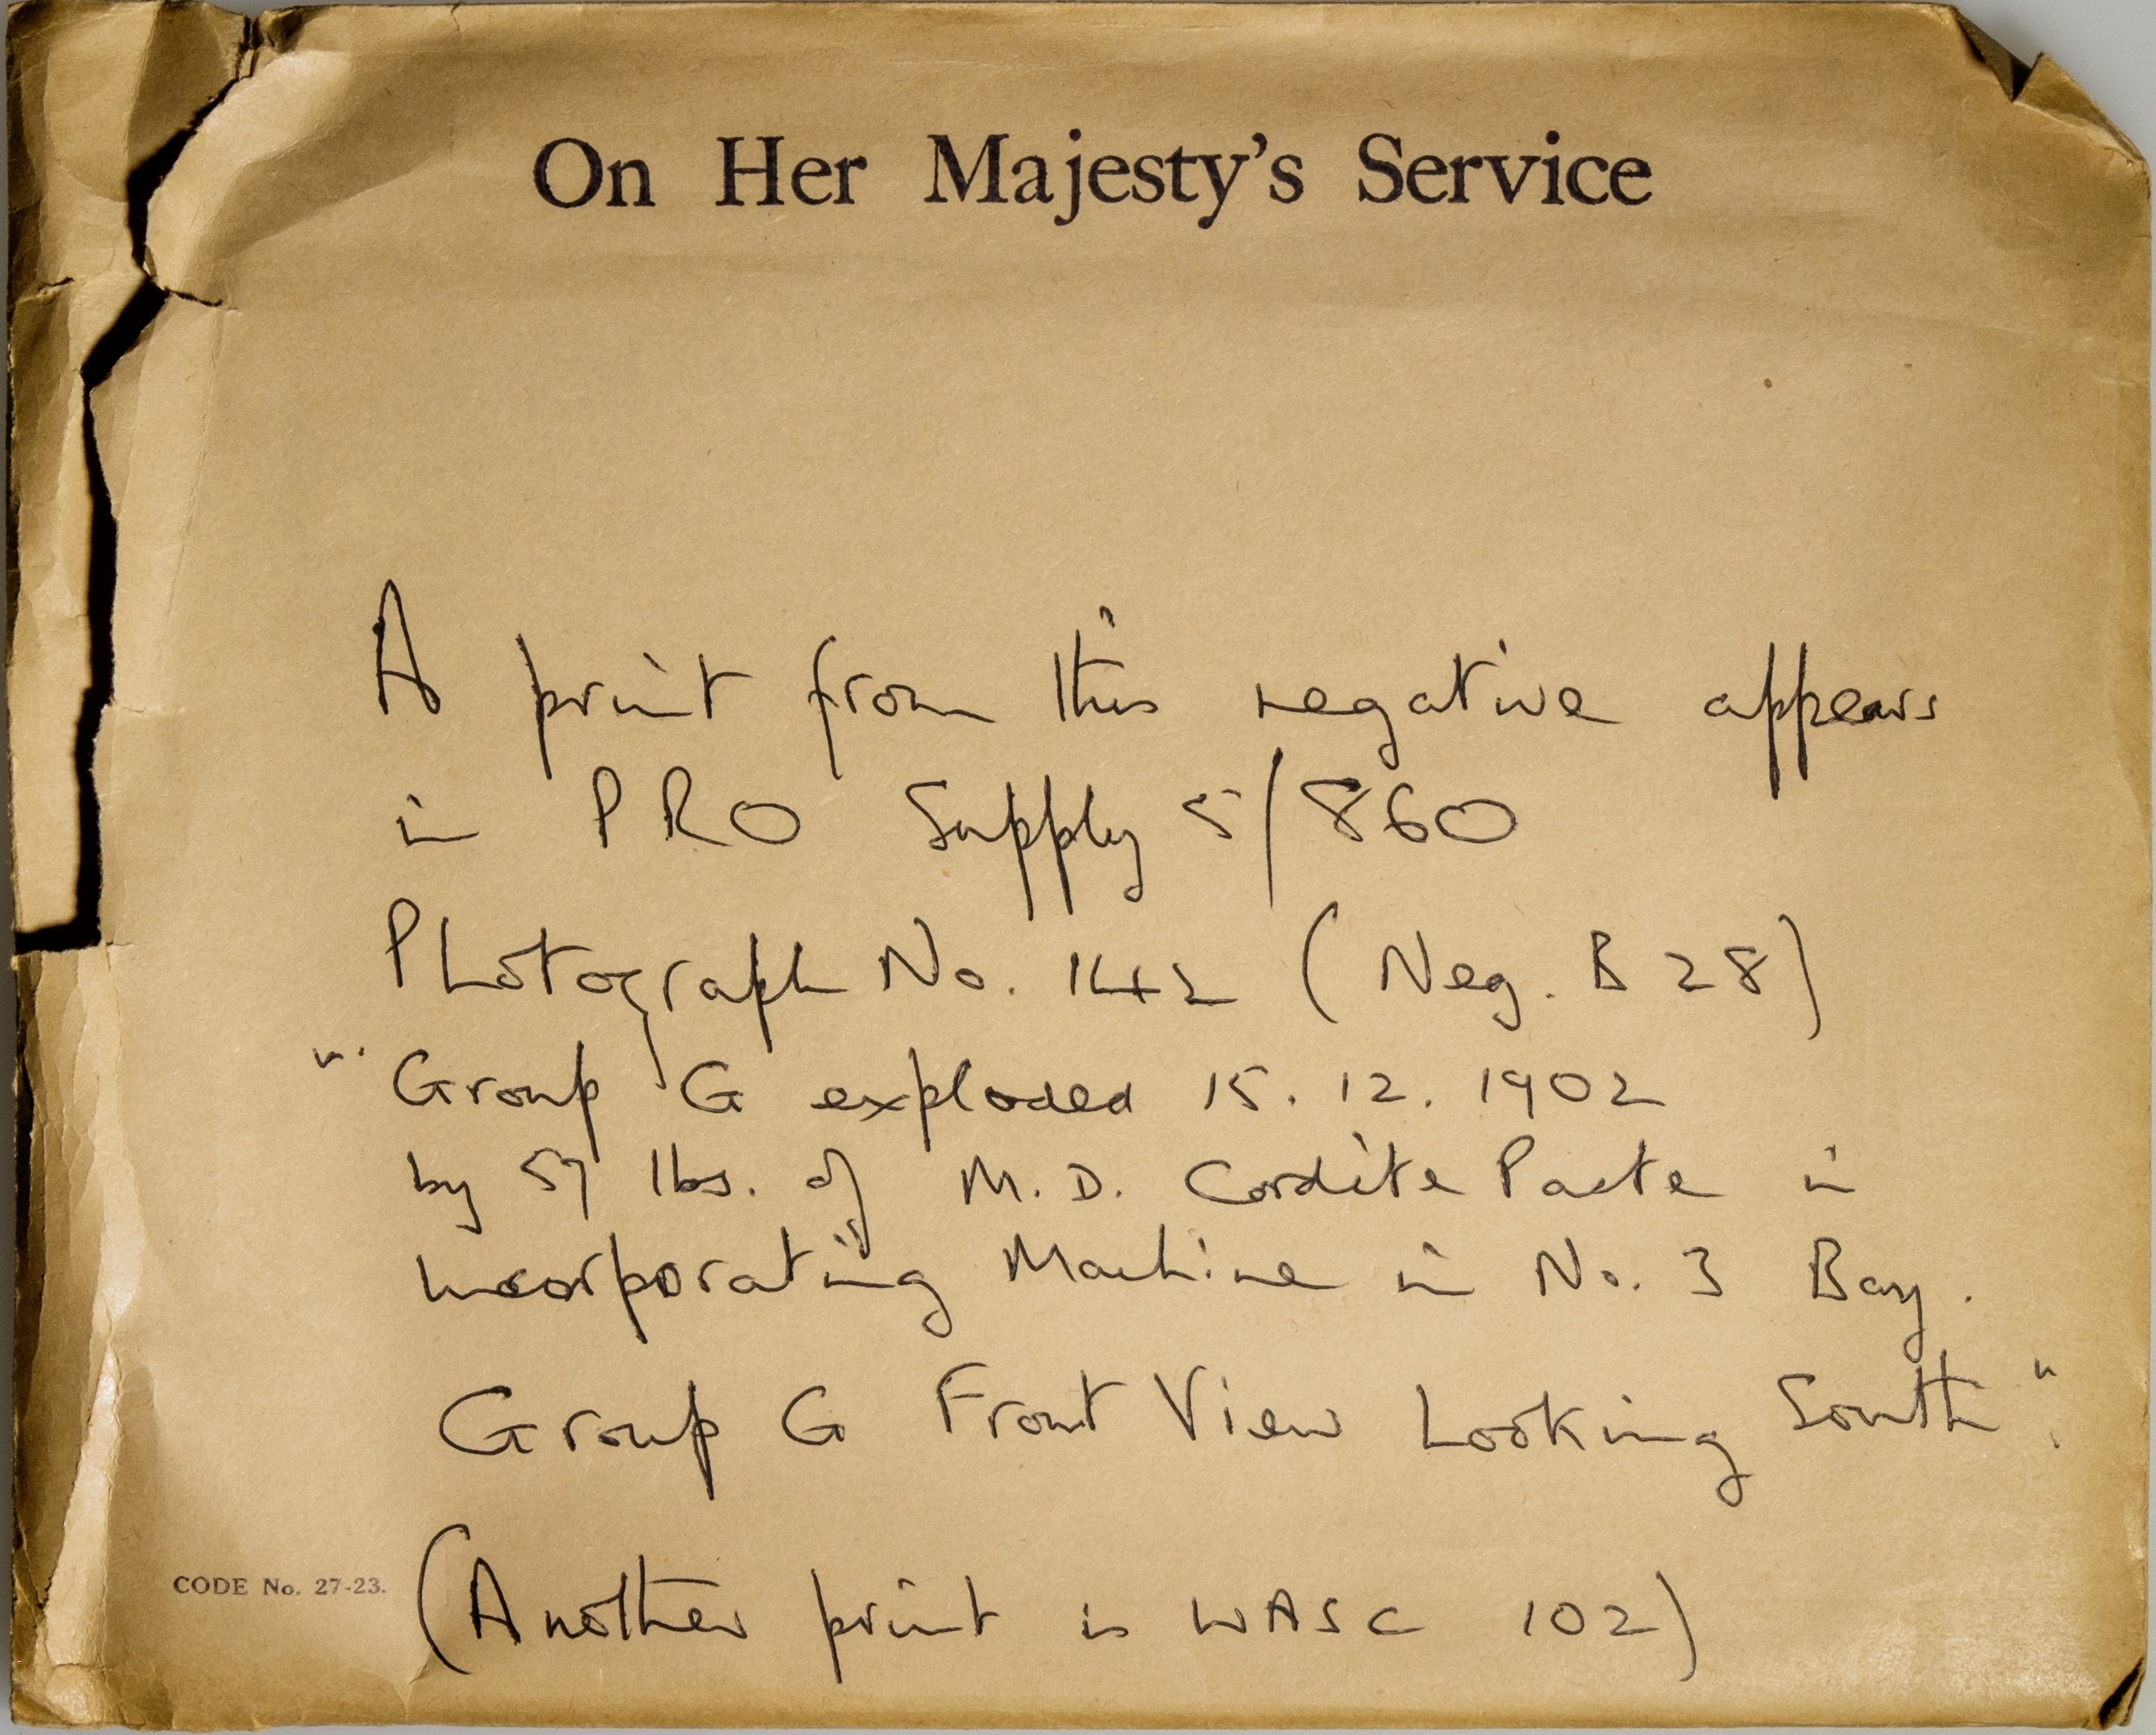 On Her Majesty's Service
A print from this negative appears
in PRO Supply 5/860
Photograph No. 142 (Neg. B 28)
"Group G exploded 15. 12. 1902
by 57 lbs. of M.D. Cordite Paste in
incorporating Machine in No. 3 Bay.
Group G Front View Looking South".
CODE No. 27-23.
(Another print is WASC 102)